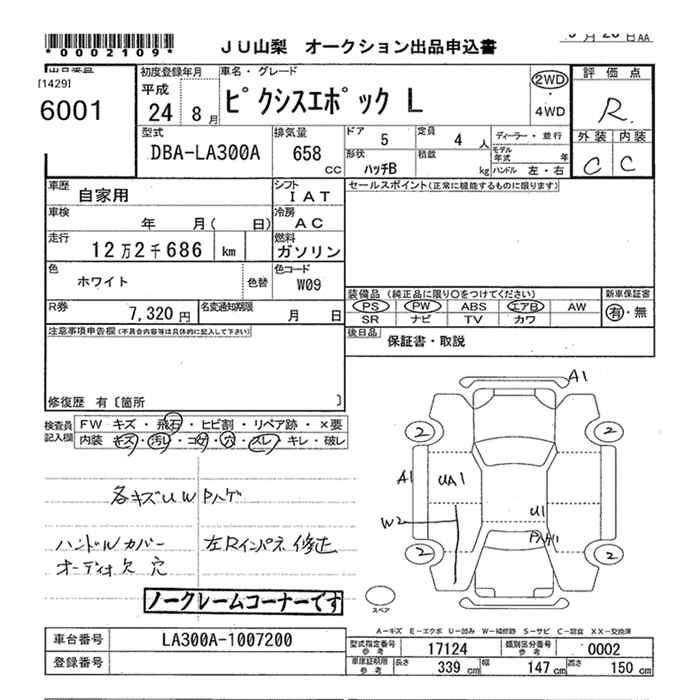 *0002109*
JU山梨 オークション出品申込書
出品番号
[1429]
6001
初度登録年月
平成
24 8月
車名・グレード
ピクシスエポック L
2WD
・
4WD
評価点
R
外装 内装
C C
型式
DBA-LA300A
排気量
658
CC
ドア 5
定員 4人
ディーラー・並行
モデル年式 年
形状 ハッチB
積載 kg
ハンドル 左・右
車歴 自家用
シフト IAT
セールスポイント(正常に機能するものに限ります)
車検 年 月( 日)
冷房 AC
走行 12万2千686 km
燃料 ガソリン
色 ホワイト
色替
色コード W09
装備品(純正品に限り○をつけてください)
新車保証書
PS PW ABS エアB AW
有・無
SR ナビ TV カワ
R券 7,320円
名変通知期限 月 日
後日品 保証書・取説
注意事項申告欄(不具合内容等は具体的に記入して下さい)
修復歴 有〔箇所 〕
検査員記入欄
FW キズ・飛石・ヒビ割・リペア跡・×要
内装 キズ・汚レ・コゲ・穴・スレ・キレ・破レ
各キズUW Pハゲ
ハンドルカバー 左Rインパネ修正
オーディオ欠 穴
ノークレームコーナーです
A1
2 2
A1 UA1
W2
U1
2 2
スペア
A-キズ E-エクボ U-凹み W-補修跡 S-サビ C-腐食 XX-交換済
車台番号 LA300A-1007200
型式指定番号 参考 17124
類別区分番号 参考 0002
登録番号
車庫証明用 参考
長さ 339 cm 幅 147 cm 高さ 150 cm